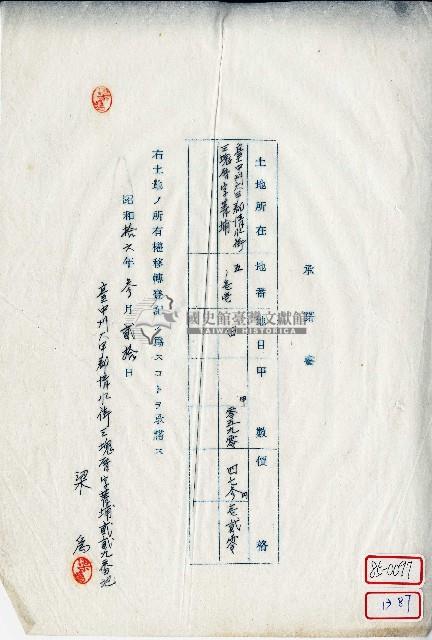 承諾書
土地所在 地番 地目 甲數 價格
臺中州大甲郡清水街
三塊厝字菁埔
五
田
甲
零五九零
円
四七参壱貳零
右土地ノ所有權移轉登記ヲ為スコトヲ承諾ス
昭和拾六年参月貳拾日
臺中州大甲郡清水街三塊厝字菁埔貳貳九番地
梁為
國史館臺灣文獻館
TAIWAN HISTORICA
85-0097
1387